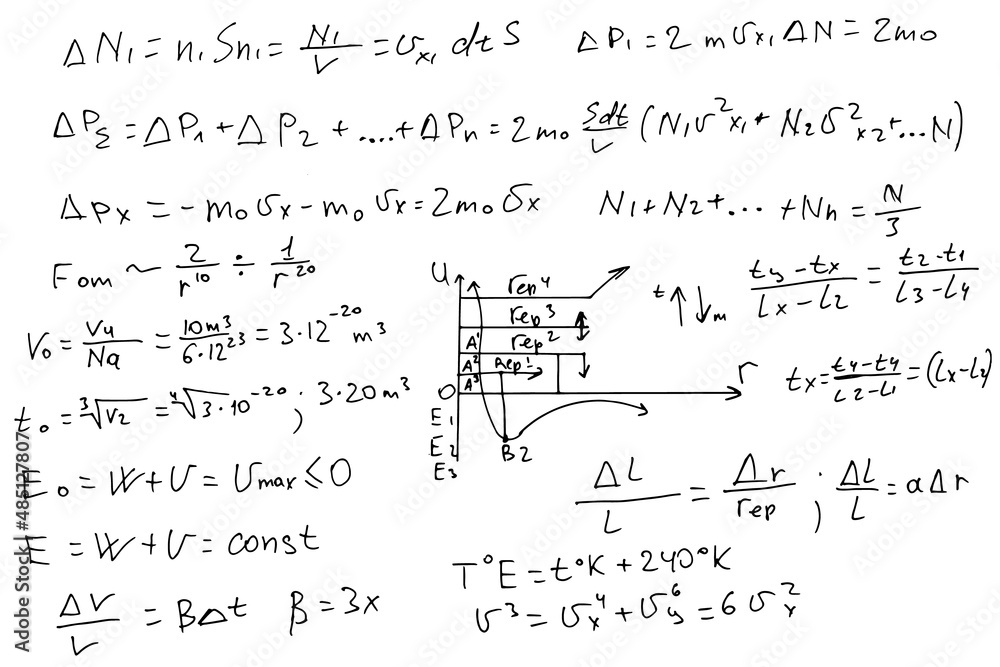 ΔN₁ = n₁Sn₁ = N₁/V = υx₁ dt S
ΔP₁ = 2 mυx₁ ΔN = 2m₀
ΔPΣ = ΔP₁ + ΔP₂ + ....+ ΔPn = 2m₀ Sdt/V (N₁υ²x₁ + N₂υ²x₂ + ...N)
Δpx = - m₀υx - m₀υx = 2m₀υx
N₁ + N₂ + ... + Nn = N/3
Fom ~ 2/r¹⁰ ÷ 1/r²⁰
V₀ = Vu/Na = 10m³/6·12²³ = 3·12⁻²⁰ m³
t₀ = ³√V₂ = ⁴√3·10⁻²⁰ ; 3·20m³
E₀ = W+U = Umax ≤ 0
E = W+U = const
ΔV/V = BΔt β = 3x
U
rep⁴
rep³
A¹ rep²
A² Rep¹
A³
O
r
E₁
E₂
E₃
B2
t ↑↓m
ty - tx/Lx - L2 = t2 - t1/L3 - L4
tx = t4 - t4/L2 - L1 = (Lx - L2)
ΔL/L = Δr/rep ; ΔL/L = αΔr
T°E = t°K + 240°K
υ³ = υx⁴ + υy⁶ = 6υx²
Adobe Stock | #485127807
Adobe Stock